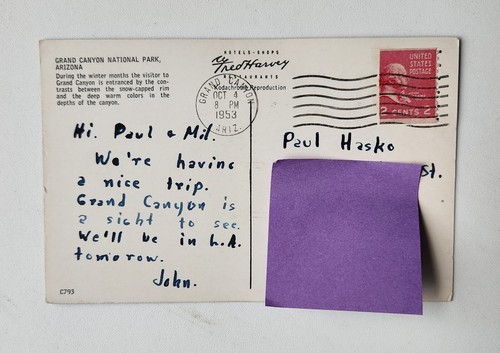 GRAND CANYON NATIONAL PARK,
ARIZONA
During the winter months the visitor to
Grand Canyon is entranced by the con-
trasts between the snow-capped rim
and the deep warm colors in the
depths of the canyon.
HOTELS · SHOPS
Fred Harvey
RESTAURANTS
Kodachrome Reproduction
GRAND CANYON
OCT 4
8 PM
1953
ARIZ.
UNITED
STATES
POSTAGE
2 CENTS 2
Hi. Paul & Mil.
We're having
a nice trip.
Grand Canyon is
a sight to see.
We'll be in L.A.
tomorrow.
John.
Paul Hasko
St.
C793